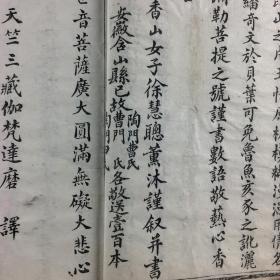 繙奇文於貝葉可免魯魚亥豕之訛灑
勒菩提之號謹書數語敬熱心香
香山女子徐慧聰薰沐謹叙并書
安徽含山縣已故曹門陶門曹氏氏各敬送壹百本
音菩薩廣大圓滿無礙大悲心
天竺三藏伽梵達磨 譯